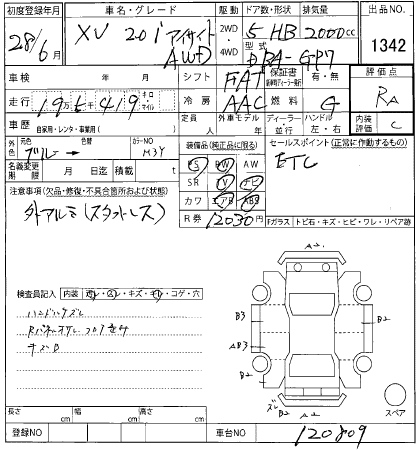 初度登録年月 車名・グレード 駆動 ドア数・形状 排気量 出品NO
28年 6月 XV 2.0i アイサイト AWD 2WD・4WD 5 HB 2000cc 1342
型式 DBA-GP7
車検 年 月 シフト FAT 保証書 有・無 評価点
走行 19万 千419 キロ マイル 冷房 AAC 燃料 G RA
車歴 自家用・レンタ・事業用( ) 定員 人 外車モデル 年 ディーラー・並行 ハンドル 左・右 内装評価 C
外色 元色 ブルー → 色替 カラーNO M3Y 装備品(純正品に限る) セールスポイント(正常に作動するもの)
名義変更期限 月 日迄 積載 t PS PW AW ETC
注意事項(欠品・修復・不具合箇所および状態) SR TV ナビ
外アルミ(スタットレス) カワ エアB ABS
R券 12030円 Fガラス トビ石・キズ・ヒビ・ワレ・リペア跡
検査員記入 内装 ・スレ・キズ・キレ・コゲ・穴
ハンドルスレ
キズ
A2
B3
AB3
B2
B2
スレ B2 A2
スペア
長さ cm 幅 cm 高さ cm
登録NO 車台NO 120809